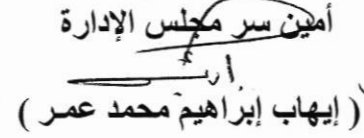 أمين سر مجلس الإدارة
( إيهاب إبراهيم محمد عمر )